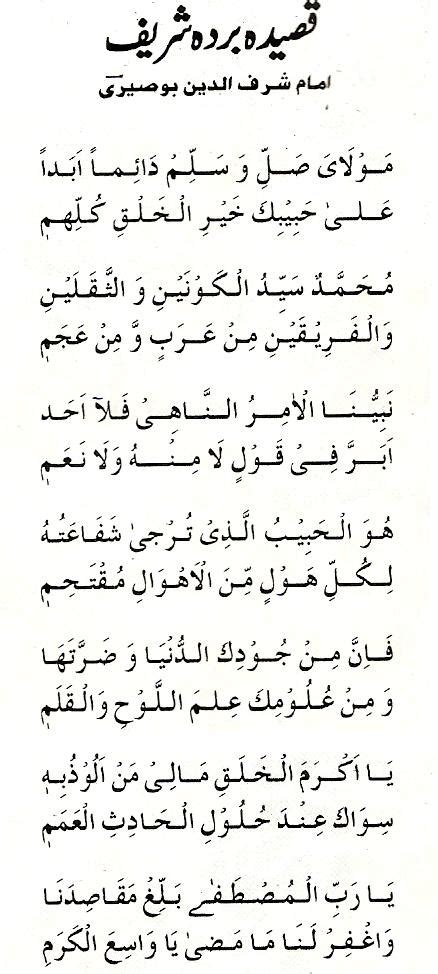 قصیدہ بردہ شریف
امام شرف الدین بوصیریؒ
مَوْلَایَ صَلِّ وَ سَلِّمْ دَائِماً اَبَداً
عَلیٰ حَبِیْبِكَ خَیْرِ الْخَلْقِ كُلِّهِمٖ
مُحَمَّدٌ سَیِّدُ الْكَوْنَیْنِ وَ الثَّقَلَیْنِ
وَالْفَرِیْقَیْنِ مِنْ عَرَبٍ وَّ مِنْ عَجَمٖ
نَبِیُّنَا الْاٰمِرُ النَّاهِیْ فَلَآ اَحَد
اَبَرَّ فِیْ قَوْلِ لَا مِنْهُ وَلَا نَعَمٖ
هُوَ الْحَبِیْبُ الَّذِیْ تُرْجیٰ شَفَاعَتُهُ
لِكُلِّ هَوْلٍ مِّنَ الْاَهْوَالِ مُقْتَحِمٖ
فَاِنَّ مِنْ جُوْدِكَ الدُّنْیَا وَ ضَرَّتَهَا
وَ مِنْ عُلُوْمِكَ عِلمَ اللَّوْحِ وَالْقَلَمٖ
یَا اَكْرَمَ الْخَلَقِ مَالِیْ مَنْ اَلُوْذُبِهٖ
سِوَاكَ عِنْدَ حُلُوْلِ الْحَادِثِ الْعَمَمٖ
یَا رَبِّ الْمُصْطَفٰے بَلِّغْ مَقَاصِدَنَا
وَاغْفِرْ لَنَا مَا مَضیٰ یَا وَاسِعَ الْكَرَمِ